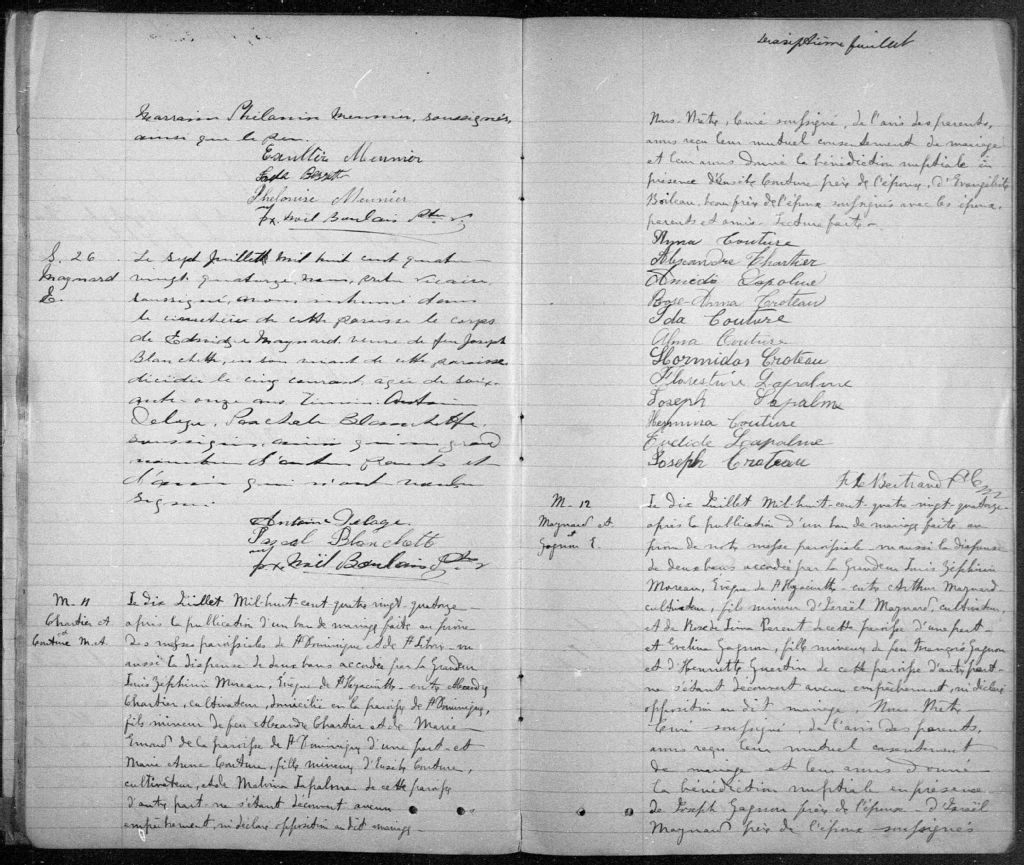 Marraine Philanise Meunier, soussignés,
ainsi que le père.
Exulière Meunier
Bessette
Phelonise Meunier
frx. Noël Boulais Ptre v.
S. 26
Maynard
E.
Le sept Juillet mil huit cent quatre-
vingt quatorze, nous, prêtre vicaire,
soussigné, avons inhumé dans
le cimetière de cette paroisse le corps
de Edwidge Maynard, veuve de feu Joseph
Blanchette, en son vivant de cette paroisse
décédée le cinq courant, agée de soix-
ante-onze ans. Témoins Antoine
Delage, Paschale Blanchette,
soussignés, ainsi qu'un grand
nombre d'autres parents et
d'amis qui n'ont voulu
signer.
Antoine Delage.
Pascal Blanchette
frx Noël Boulais Ptre v
M. 11
Chartier A
et
Couture M. A.
Le dix Juillet Mil-huit-cent quatre vingt-quatorze
après la publication d'un ban de mariage faite au prône
des messes paroissiales de St Dominique et de St Liboire - vu
aussi la dispense de deux bans accordée par Sa Grandeur
Louis Zéphirin Moreau, Evêque de St Hyacinthe - entre Alexandre
Chartier, cultivateur, domicilié en la paroisse de St Dominique,
fils mineur de feu Alexandre Chartier et de Marie
Emard de la paroisse de St Dominique d'une part - et
Marie Anna Couture, fille mineure d'Eusèbe Couture,
cultivateur, et de Malvina Lapalme de cette paroisse
d'autre part - ne s'étant découvert aucun
empêchement, ni déclaré opposition au dit mariage -
dixseptième feuillet
Nous - Ptre, Curé soussigné, de l'avis des parents,
avons reçu leur mutuel consentement de mariage
et leur avons donné la bénédiction nuptiale en
présence d'Eusèbe Couture père de l'épouse, d'Evangéliste
Boileau, beau père de l'époux soussignés avec les époux,
parents et amis - Lecture faite -
Anna Couture
Alexandre Chartier
Amedé Lapalme
Rose-Anna Croteau
Ida Couture
Alma Couture
Hormidas Croteau
Lapalme
Joseph Lapalme
Couture
Euclide Lapalme
Joseph Croteau
Bertrand Ptre Curé
M. 12
Maynard A
et
Gagnon E.
Le dix Juillet Mil-huit-cent-quatre-vingt-quatorze
après la publication d'un ban de mariage faite au
prône de notre messe paroissiale - vu aussi la dispense
de deux bans accordée par Sa Grandeur Louis Zéphirin
Moreau, Evêque de St Hyacinthe - entre Arthur Maynard
cultivateur, fils mineur d'Israël Maynard, cultivateur,
et de Rose de Lima Parent de cette paroisse d'une part -
et Eveline Gagnon, fille mineure de feu François Gagnon
et d'Henriette Guertin de cette paroisse d'autre part -
ne s'étant découvert aucun empêchement, ni déclaré
opposition au dit mariage, Nous - Ptre -
Curé soussigné, de l'avis des parents,
avons reçu leur mutuel consentement
de mariage et leur avons donné
la bénédiction nuptiale en présence
de Joseph Gagnon frère de l'épouse - d'Israël
Maynard père de l'époux soussignés